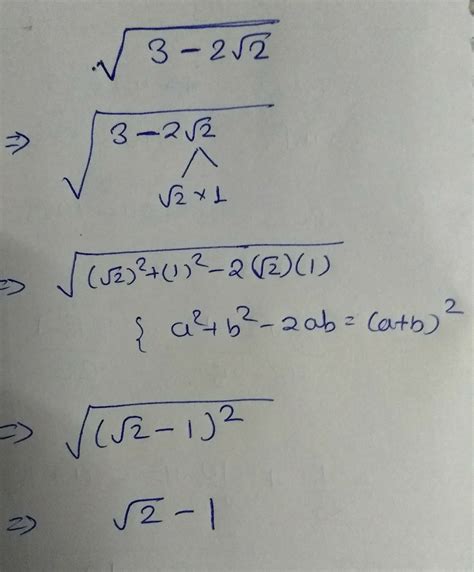 √(3 − 2√2)
⇒ √(3 − 2√2)
√2 × 1
⇒ √((√2)² + (1)² − 2(√2)(1))
{ a² + b² − 2ab = (a+b)²
⇒ √((√2 − 1)²)
⇒ √2 − 1